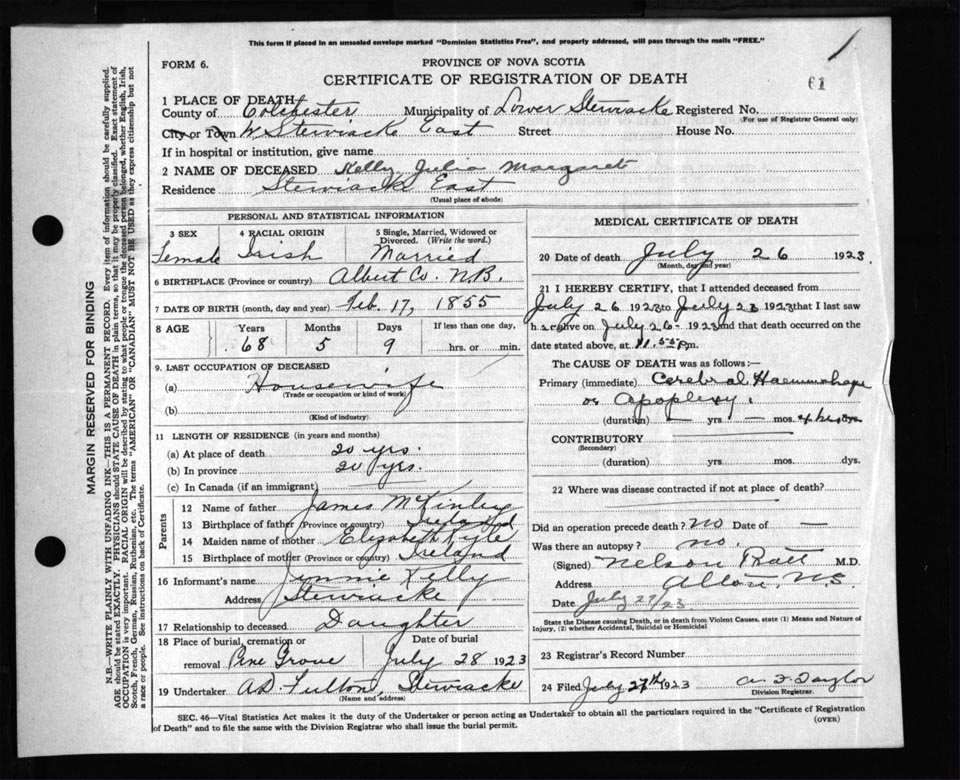 This form if placed in an unsealed envelope marked "Dominion Statistics Free", and properly addressed, will pass through the mails "FREE."
FORM 6.
PROVINCE OF NOVA SCOTIA
CERTIFICATE OF REGISTRATION OF DEATH
61
1 PLACE OF DEATH
County of Colchester Municipality of Lower Stewiacke Registered No.
(For use of Registrar General only)
City or Town W. Stewiacke East Street House No.
If in hospital or institution, give name
2 NAME OF DECEASED Kelly, Julia Margaret
Residence Stewiacke East
(Usual place of abode)
PERSONAL AND STATISTICAL INFORMATION
3 SEX 4 RACIAL ORIGIN 5 Single, Married, Widowed or Divorced. (Write the word.)
Female Irish Married
6 BIRTHPLACE (Province or country) Albert Co. N.B.
7 DATE OF BIRTH (month, day and year) Feb. 17, 1855
8 AGE Years Months Days If less than one day,
68 5 9 hrs. or min.
9. LAST OCCUPATION OF DECEASED
(a) Housewife
(Trade or occupation or kind of work)
(b)
(Kind of industry)
11 LENGTH OF RESIDENCE (in years and months)
(a) At place of death 20 yrs.
(b) In province 20 yrs.
(c) In Canada (if an immigrant)
Parents
12 Name of father James McKinley
13 Birthplace of father (Province or country) Ireland
14 Maiden name of mother Elizabeth Kyle
15 Birthplace of mother (Province or country) Ireland
16 Informant's name Jennie Kelly
Address Stewiacke
17 Relationship to deceased Daughter
18 Place of burial, cremation or removal Pine Grove Date of burial July 28 1923
19 Undertaker A.D. Fulton, Stewiacke
(Name and address)
MEDICAL CERTIFICATE OF DEATH
20 Date of death July 26 1923
(Month, day and year)
21 I HEREBY CERTIFY, that I attended deceased from
July 26 1923 to July 26 1923 that I last saw
h er alive on July 26 - 1923 and that death occurred on the
date stated above, at 11.55 P.m.
The CAUSE OF DEATH was as follows:—
Primary (immediate) Cerebral Haemorrhage
or Apoplexy.
(duration) — yrs — mos.
CONTRIBUTORY
(Secondary)
(duration) yrs. mos. dys.
22 Where was disease contracted if not at place of death?
Did an operation precede death? No Date of —
Was there an autopsy? no.
(Signed) Nelson Pratt M.D.
Address Alton, N.S
Date July 27/23.
State the Disease causing Death, or in death from Violent Causes, state (1) Means and Nature of Injury, (2) whether Accidental, Suicidal or Homicidal
23 Registrar's Record Number
24 Filed July 27th 1923 A. F. Taylor
Division Registrar.
SEC. 46—Vital Statistics Act makes it the duty of the Undertaker or person acting as Undertaker to obtain all the particulars required in the "Certificate of Registration
of Death" and to file the same with the Division Registrar who shall issue the burial permit.
(OVER)
MARGIN RESERVED FOR BINDING
N.B.—WRITE PLAINLY WITH UNFADING INK—THIS IS A PERMANENT RECORD. Every item of information should be carefully supplied.
AGE should be stated EXACTLY. PHYSICIANS should STATE CAUSE OF DEATH in plain terms, so that it may be properly classified. Exact statement of
OCCUPATION is very important. RACIAL ORIGIN will be described by stating to what people or tongue the deceased person belonged, whether English, Irish,
Scotch, French, German, Russian, Ruthenian, etc. The terms "AMERICAN" OR "CANADIAN" MUST NOT BE USED as they express citizenship but not
a race or people. See instructions on back of Certificate.